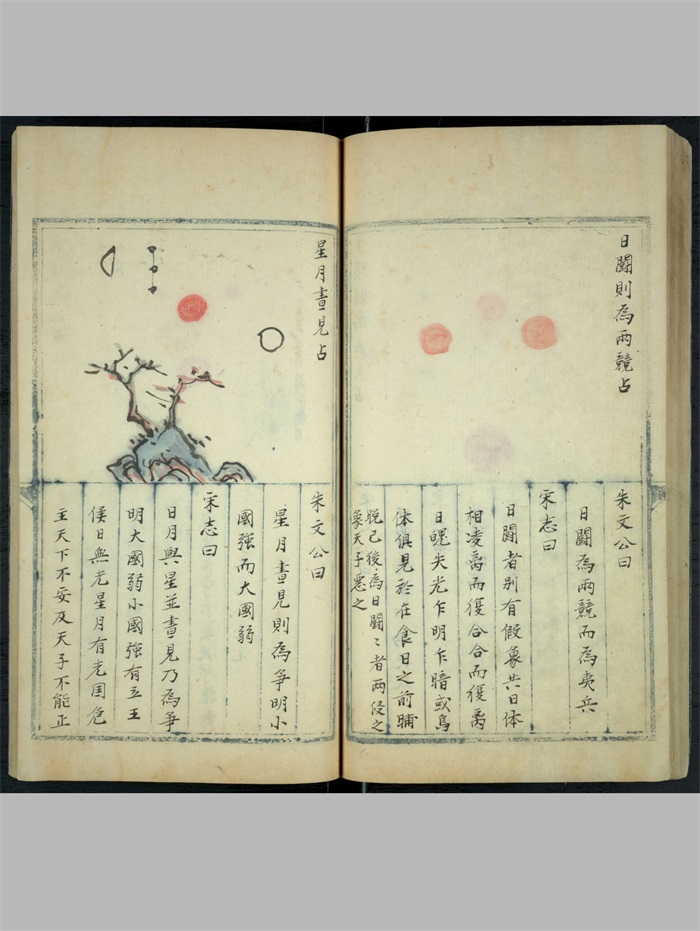 日鬪則為兩競占
朱文公曰
日鬪為兩競而為夷兵
宋志曰
日鬪者別有假象共日体
相凌离而復合合而復离
日晲失光乍明乍暗或烏
体俱見於在食日之前晡
晚已後為日鬪〻者兩侵之
象天子惡之
星月晝見占
朱文公曰
星月晝見則為争明小
國強而大國弱
宋志曰
日月與星並晝見乃為争
明大國弱小國強有立王
侯日無光星月有光国危
主天下不安及天子不能正